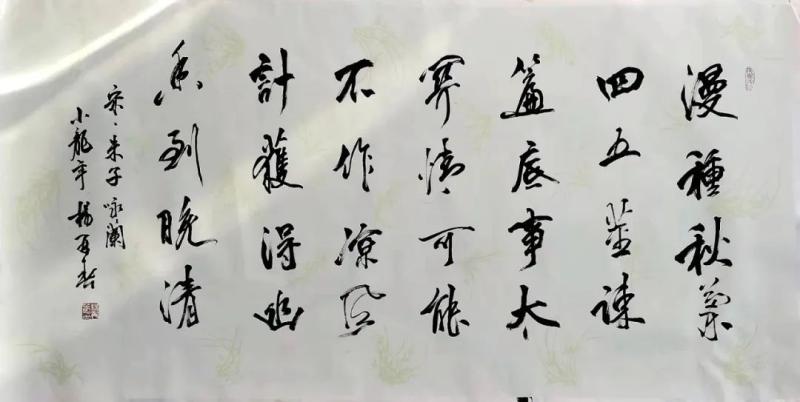 漫種秋蘭
四五莖疎
簾底事太
關情可能
不作凉風
計獲得幽
香到晚清
宋、朱子咏蘭
小龍年 楊